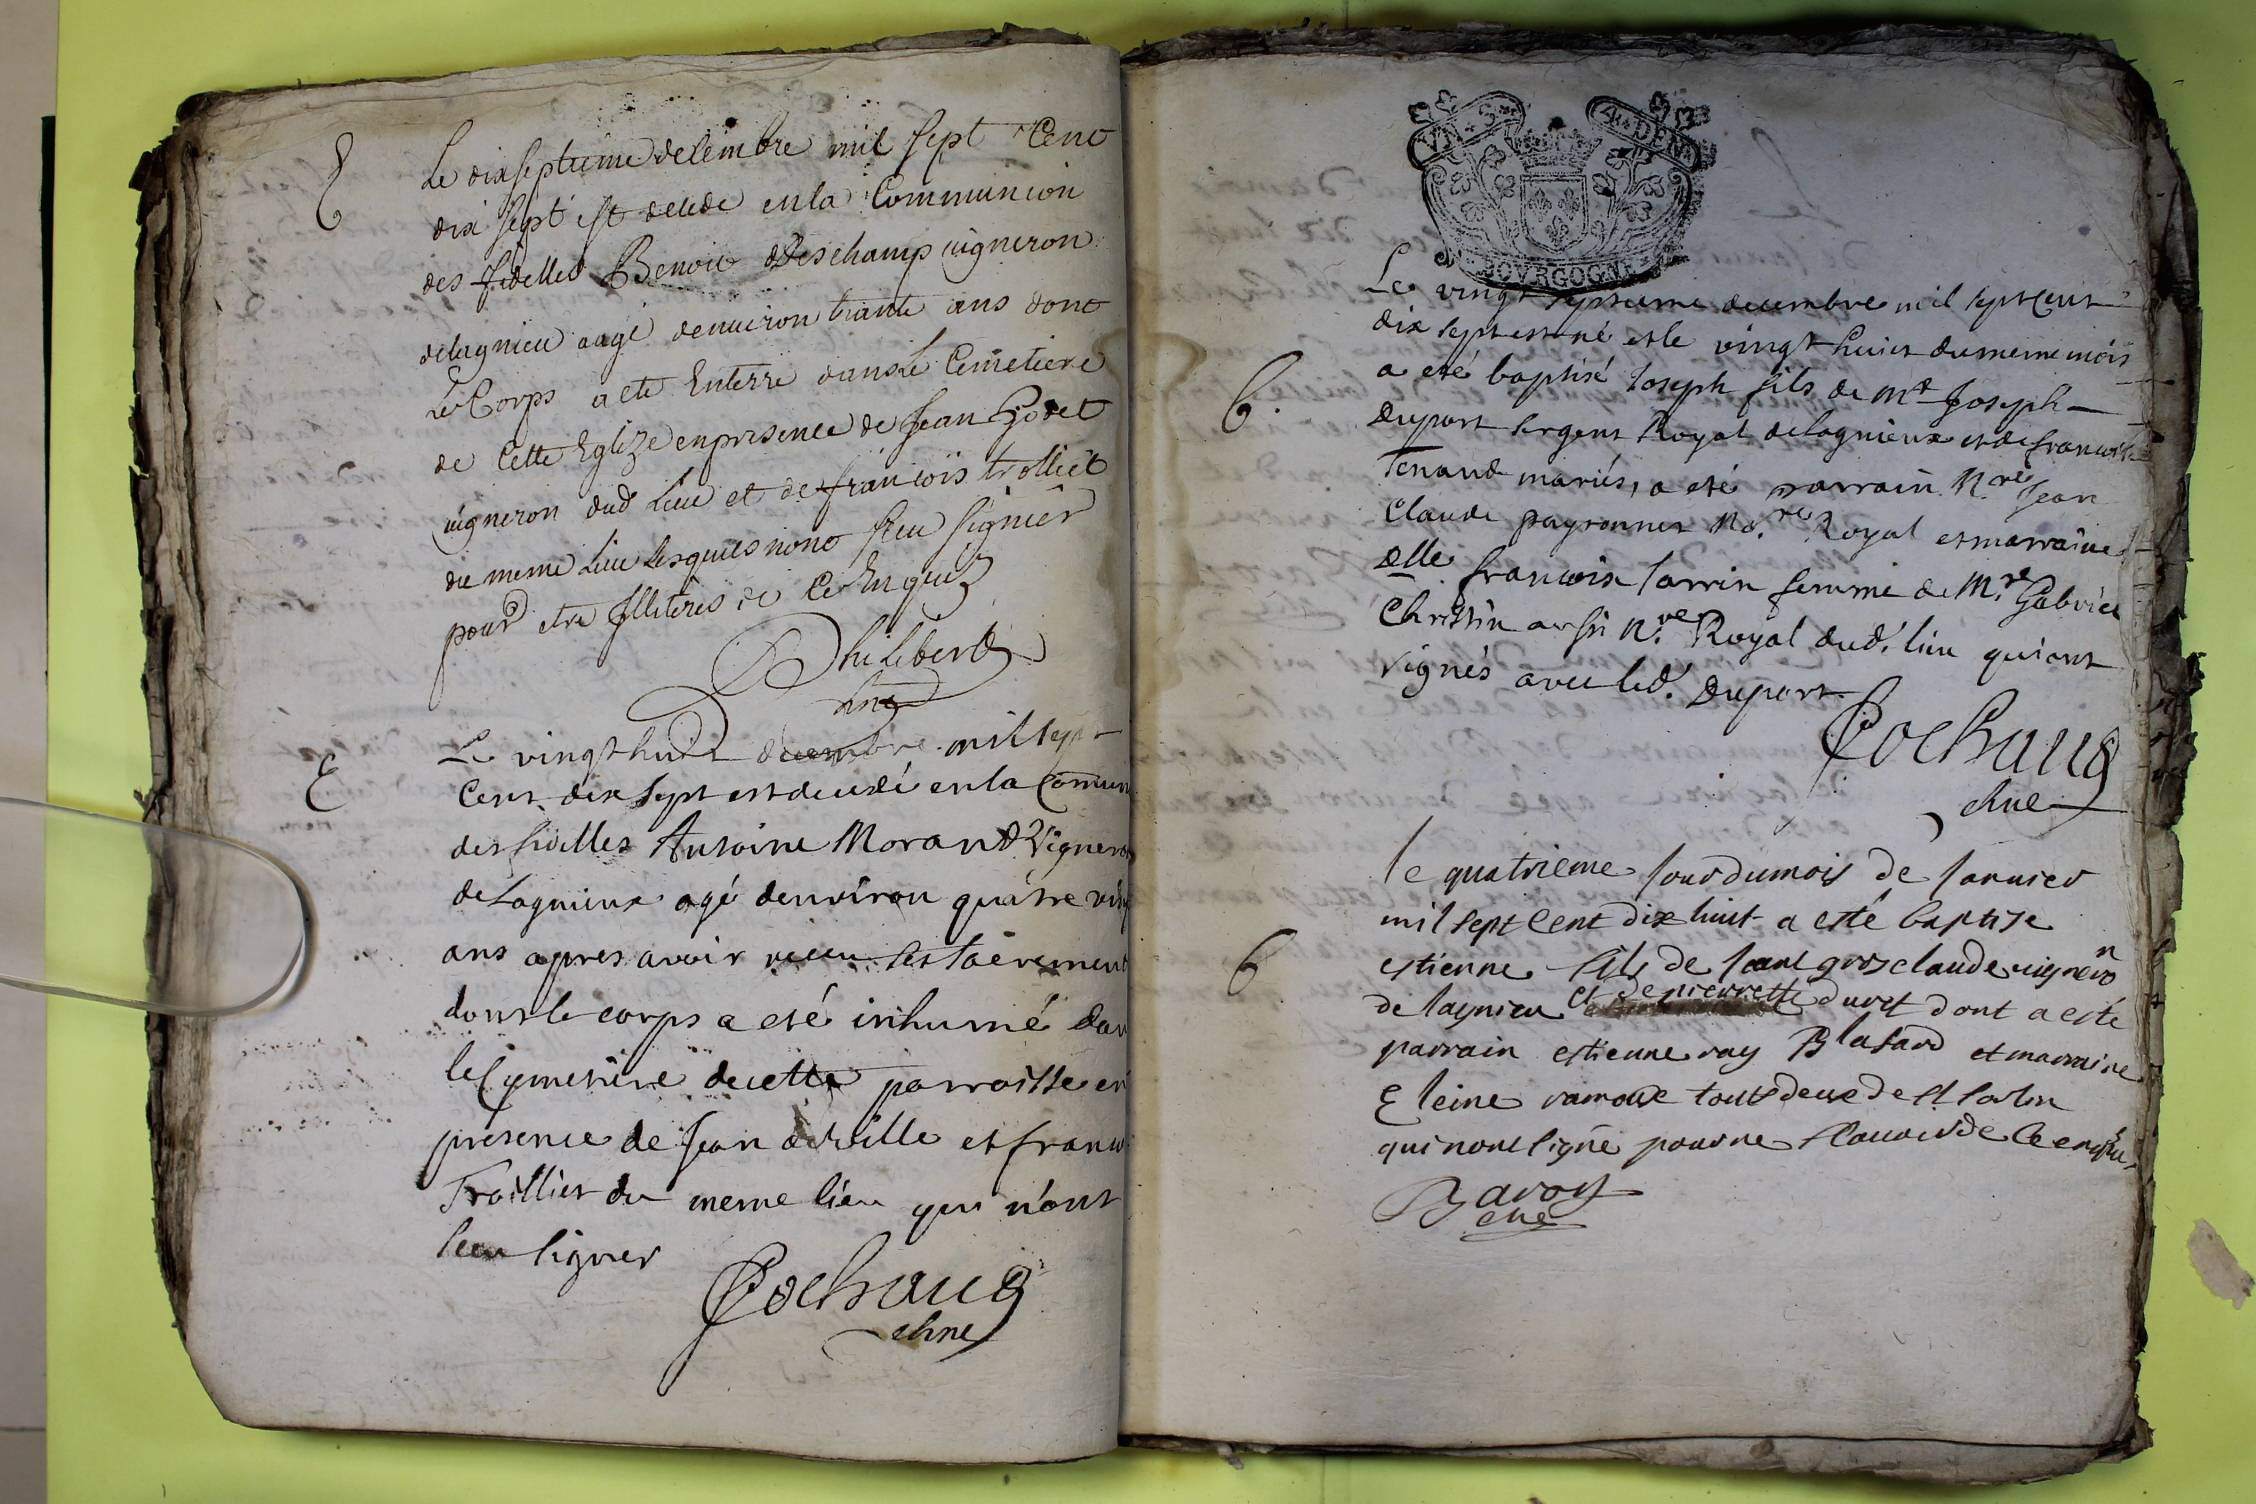 E
Le dixseptieme decembre mil sept Cent
dix sept est decede en la Communion
des fidelles Benoit Deschamp vigneron
delagnieu aagé denuiron trante ans dont
Le Corps a ete Enterré dans Le Cemetiere
de Cette Eglize en presence de Jean Godet
vigneron dud Lieu et de françois trolliet
du meme Lieu Lesquels nont sceu signier
pour etre Jlliteres de Ce Enquis
Philibert
chne
E
Le vingt huit decembre mil sept
Cent dix sept est decedé en la Commun
des fidelles Antoine Morand Vigneron
de Lagnieux agé denviron quatre vingt
ans apres avoir receu les sacrement
dont le corps a eté inhumé dans
le Cymetiere de cette parroisse en
presence de Jean derville et franc
Trolliet du meme lieu qui n'ont
sceu signer
Cochaud
chne
VN S 4 DEN
BOVRGOGNE
Le vingt septieme decembre mil sept Cent
dix sept est né et le vingt huict du meme mois
6.
a eté baptisé Joseph fils de Mt Joseph
Duport sergent Royal de lagnieux et de francoise
Tenand mariés, a eté parrain Mre Jean
Claude payronnet No.re Royal et marraine
Delle francoise sarrin femme de Mre Gabriel
Christin aussi N.re Royal dud. lieu qui ont
signés avec led. Duport
Cochaud
chne
le quatrieme Jour du mois de Januier
mil sept Cent dix huit a esté baptise
6
estienne fils de Jean gros claude uigneron
de lagnieu et de pierrette duret dont a esté
parrain estienne ray Blasard et marraine
Eleine ramous tout deux de st sorlin
qui nont signe pour ne scauoir de Ce enquis
Bavoy
chne